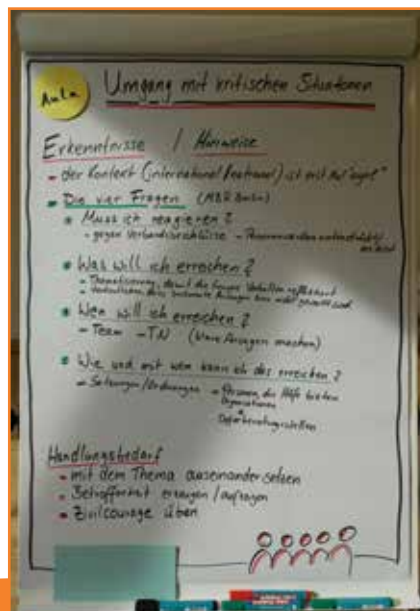 Aula
Umgang mit kritischen Situationen
Erkenntnisse / Hinweise
- der Kontext (international / national) ist
- Die vier Fragen (MBR Berlin)
Muss ich reagieren?
- gegen Verbandsbeschlüsse - Personen werden
Was will ich erreichen?
- Thematisierung, damit die Person Verhalten reflektiert
- Verdeutlichen, dass bestimmte Aussagen hier nicht
Wen will ich erreichen?
- Team - TN (klare Ansagen machen)
Wie und mit wem kann ich das erreichen?
- Satzungen/Ordnungen - Personen, die Hilfe bieten
Organisationen
Opferberatungsstellen
Handlungsbedarf
- mit dem Thema auseinander setzen
- Betroffenheit erzeugen / aufzeigen
- Zivilcourage üben